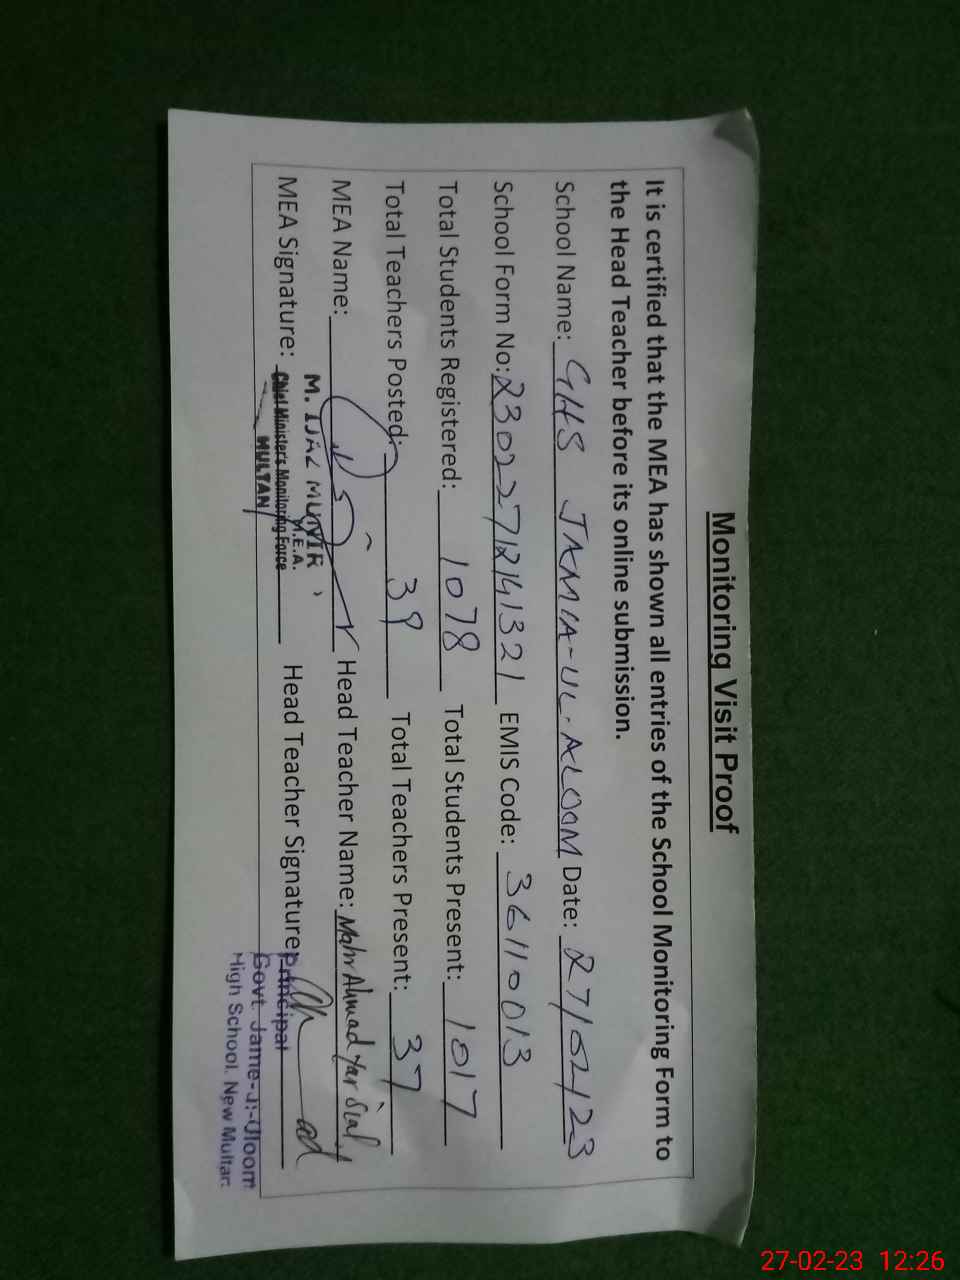 Monitoring Visit Proof
It is certified that the MEA has shown all entries of the School Monitoring Form to
the Head Teacher before its online submission.
School Name: GHS JAMIA-UL-ALOOM Date: 27/02/23
School Form No: 230227124321 EMIS Code: 36110013
Total Students Registered: 1078 Total Students Present: 1017
Total Teachers Posted: 39 Total Teachers Present: 37
MEA Name: M. IJAZ MUNIR Head Teacher Name: Mahr Ahmad Yar Sial
M.E.A.
MEA Signature: Chief Minister's Monitoring Force Head Teacher Signature:
MULTAN
Principal
Govt. Jame-ul-Uloom
High School, New Multan.
27-02-23 12:26